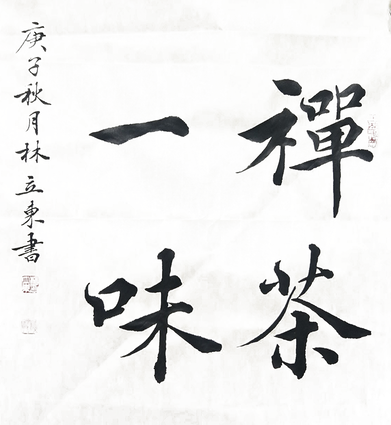 禪茶
一味
庚子秋月林立東書